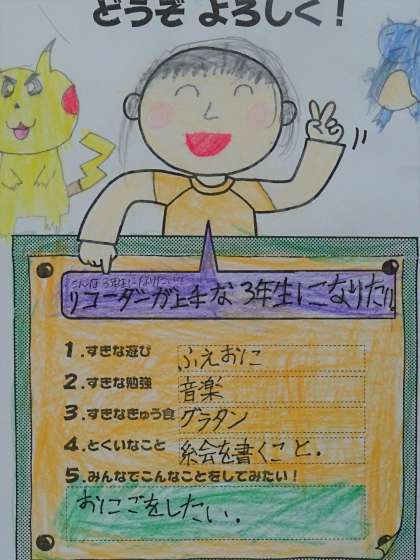 どうぞ よろしく!
こんな3年生になりたいな
リコーダーが上手な 3年生になりたい
1.すきな遊び ふえおに
2.すきな勉強 音楽
3.すきなきゅう食 グラタン
4.とくいなこと 絵を書くこと.
5.みんなでこんなことをしてみたい!
おにごをしたい.